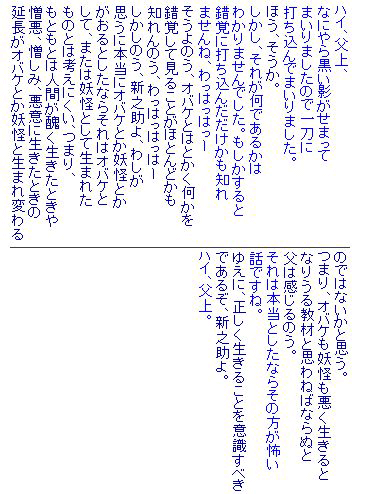 ハイ、父上、
なにやら黒い影がせまって
まいりましたので一刀に
打ち込んでまいりました。
ほう、そうか。
しかし、それが何であるかは
わかりませんでした。もしかすると
錯覚に打ち込んだだけかも知れ
ませんね、わっはっはっー
そうよのう、オバケとはとかく何かを
錯覚して見ることがほとんどかも
知れんのう、わっはっはっはー
しかしのう、新之助よ、わしが
思うに本当にオバケとか妖怪とか
がおるとしたならそれはオバケと
して、または妖怪として生まれた
ものとは考えにくい、つまり、
もともとは人間が醜く生きたときや
憎悪、憎しみ、悪意に生きたときの
延長がオバケとか妖怪と生まれ変わる
のではないかと思う。
つまり、オバケも妖怪も悪く生きると
なりうる教材と思わねばならぬと
父は感じるのう。
それは本当としたならその方が怖い
話ですね。
ゆえに、正しく生きることを意識すべき
であるぞ、新之助よ。
ハイ、父上。